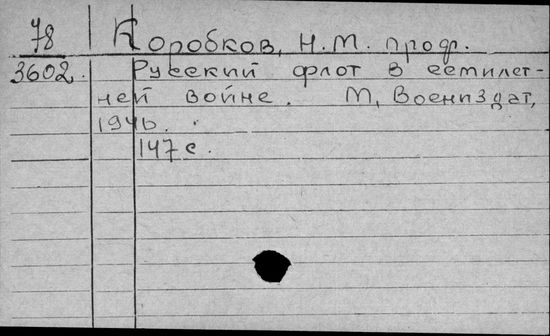 78 Коробков, Н.М. проф.
3602. Русский флот в семилет-
ней войне. М, Воениздат,
1946.
147 с.